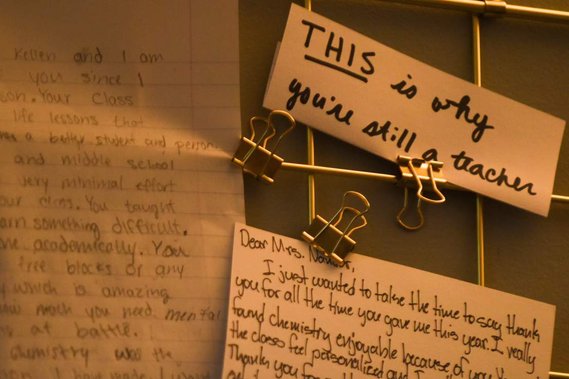 Kellen and I am
you since I
son. Your class
life lessons that
a better student and person
and middle school
very minimal effort
our class. You taught
arn something difficult.
academically. You
free blocks or any
which is amazing
how much you need mental
at battle.
chemistry was the
THIS is why
you're still a teacher
Dear Mrs.
I just wanted to take the time to say thank
you for all the time you gave me this year. I really
found chemistry enjoyable because of you
the class feel personalized and I
Thank you for